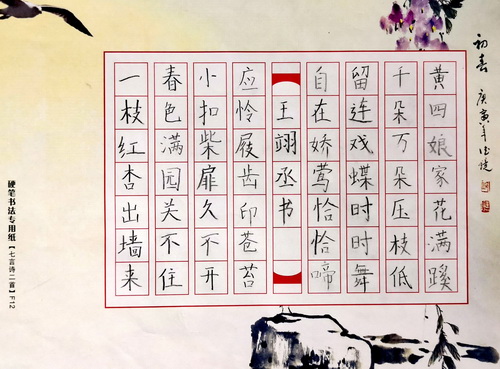 初春
庚寅年
黄四娘家花满蹊
千朵万朵压枝低
留连戏蝶时时舞
自在娇莺恰恰啼
王翊丞书
应怜屐齿印苍苔
小扣柴扉久不开
春色满园关不住
一枝红杏出墙来
硬笔书法专用纸【七言诗二首】F12